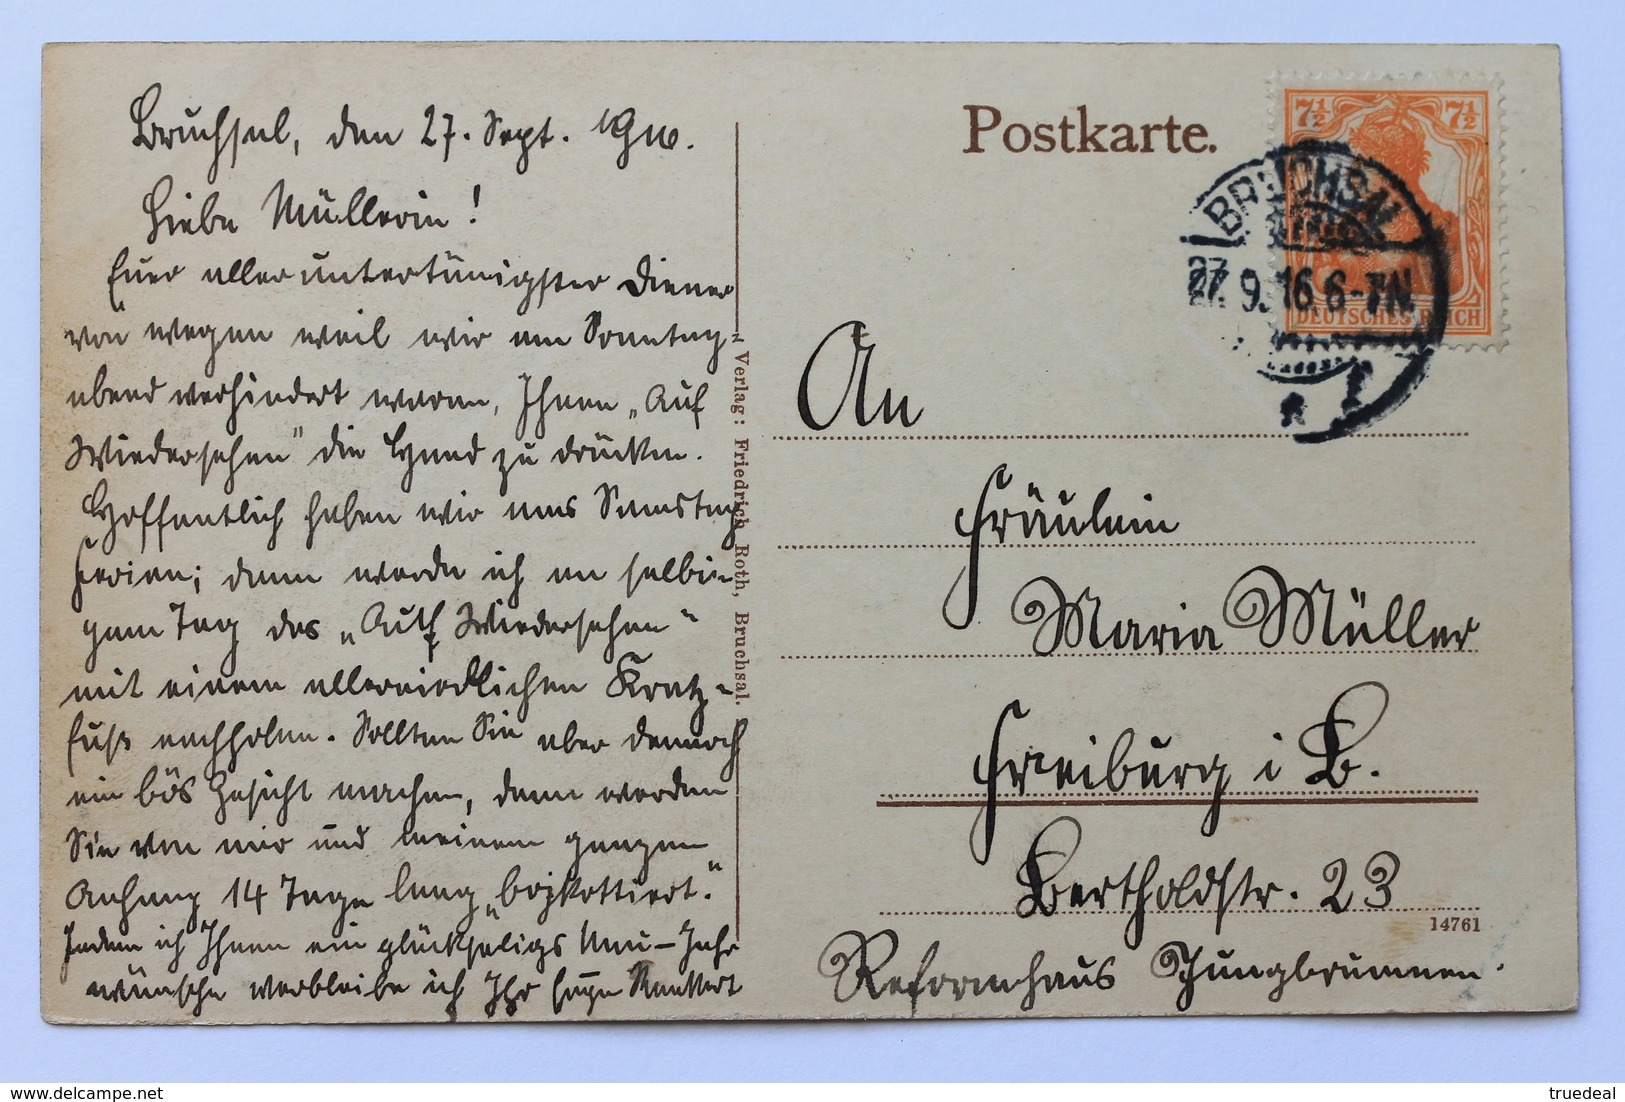 Bruchsal, den 27. Sept. 1916.
Liebe Müllerin!
Euer alleruntertänigster Diener
von wegen weil wir am Sonntag
abend verhindert waren, Ihnen „Auf
Wiedersehen" die Hand zu drücken.
Hoffentlich haben wir uns Samstag
Ferien; dann werde ich an selbi-
gem Tag das „Auf Wiedersehen"
mit einem allerniedlichen Kratz-
fuß nachholen. Sollten Sie aber dennoch
ein bös Gesicht machen, dann werden
Sie von mir und meinem ganzen
Anhang 14 Tage lang „boykottiert."
Indem ich Ihnen ein glückseligs Neu-Jahr
wünsche verbleibe ich Ihr
Verlag: Friedrich Roth, Bruchsal.
Postkarte.
7½ 7½
DEUTSCHES REICH
BRUCHSAL
27. 9. 16 6-7N
An
Fräulein
Maria Müller
Freiburg i B.
Bertholdstr. 23
14761
Reformhaus Jungbrunnen.
truedeal